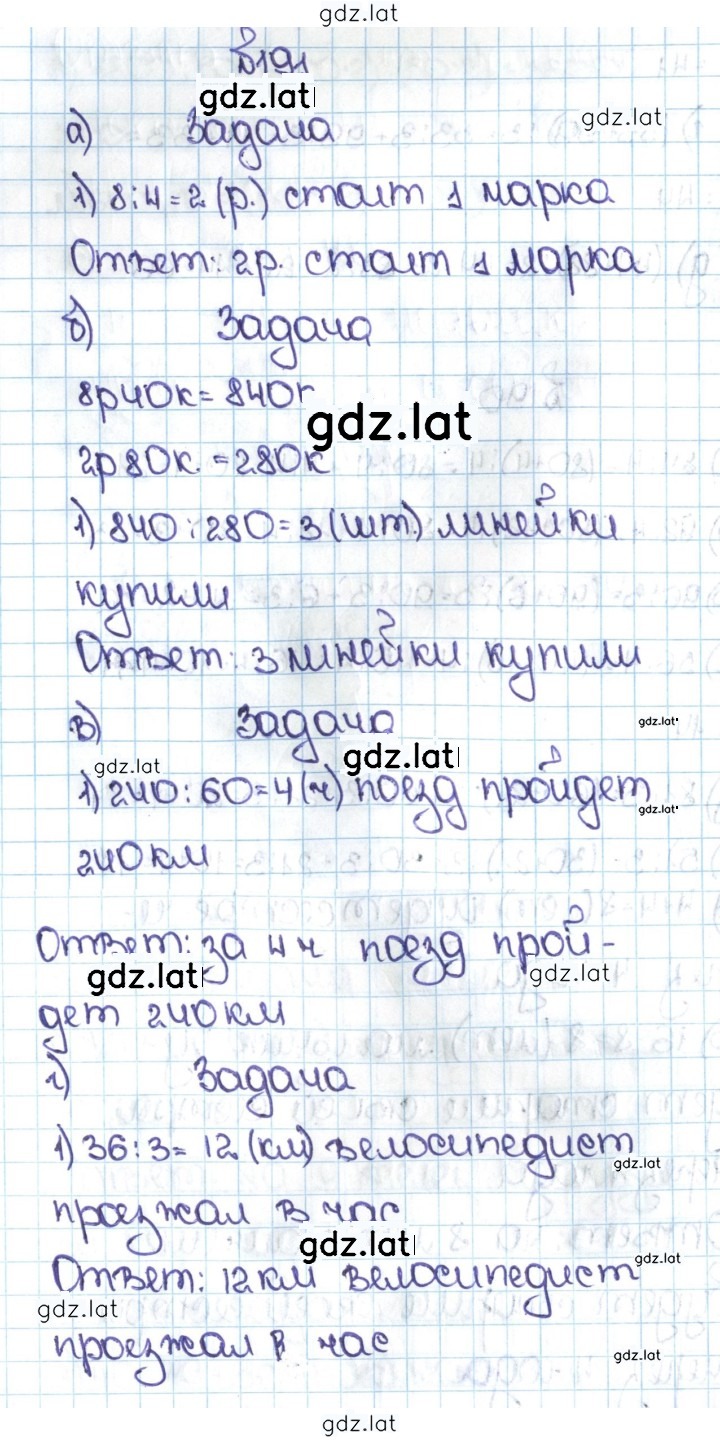 gdz.lat
№191
gdz.lat
а) Задача gdz.lat
1) 8:4=2 (р.) стоит 1 марка
Ответ: 2р. стоит 1 марка
б) Задача
8р40к= 840г
gdz.lat
2р 80к. =280к
1) 840:280=3 (шт.) линейки
купили
Ответ: 3 линейки купили
в) Задача gdz.lat
gdz.lat gdz.lat
1) 240:60=4 (ч) поезд пройдет
gdz.lat
240 км
Ответ: за 4 ч поезд прой-
gdz.lat gdz.lat
дет 240 км
г) Задача
1) 36:3= 12 (км) велосипедист
gdz.lat
проезжал в час
gdz.lat gdz.lat
Ответ: 12 км велосипедист
gdz.lat
проезжал в час gdz.lat
gdz.lat